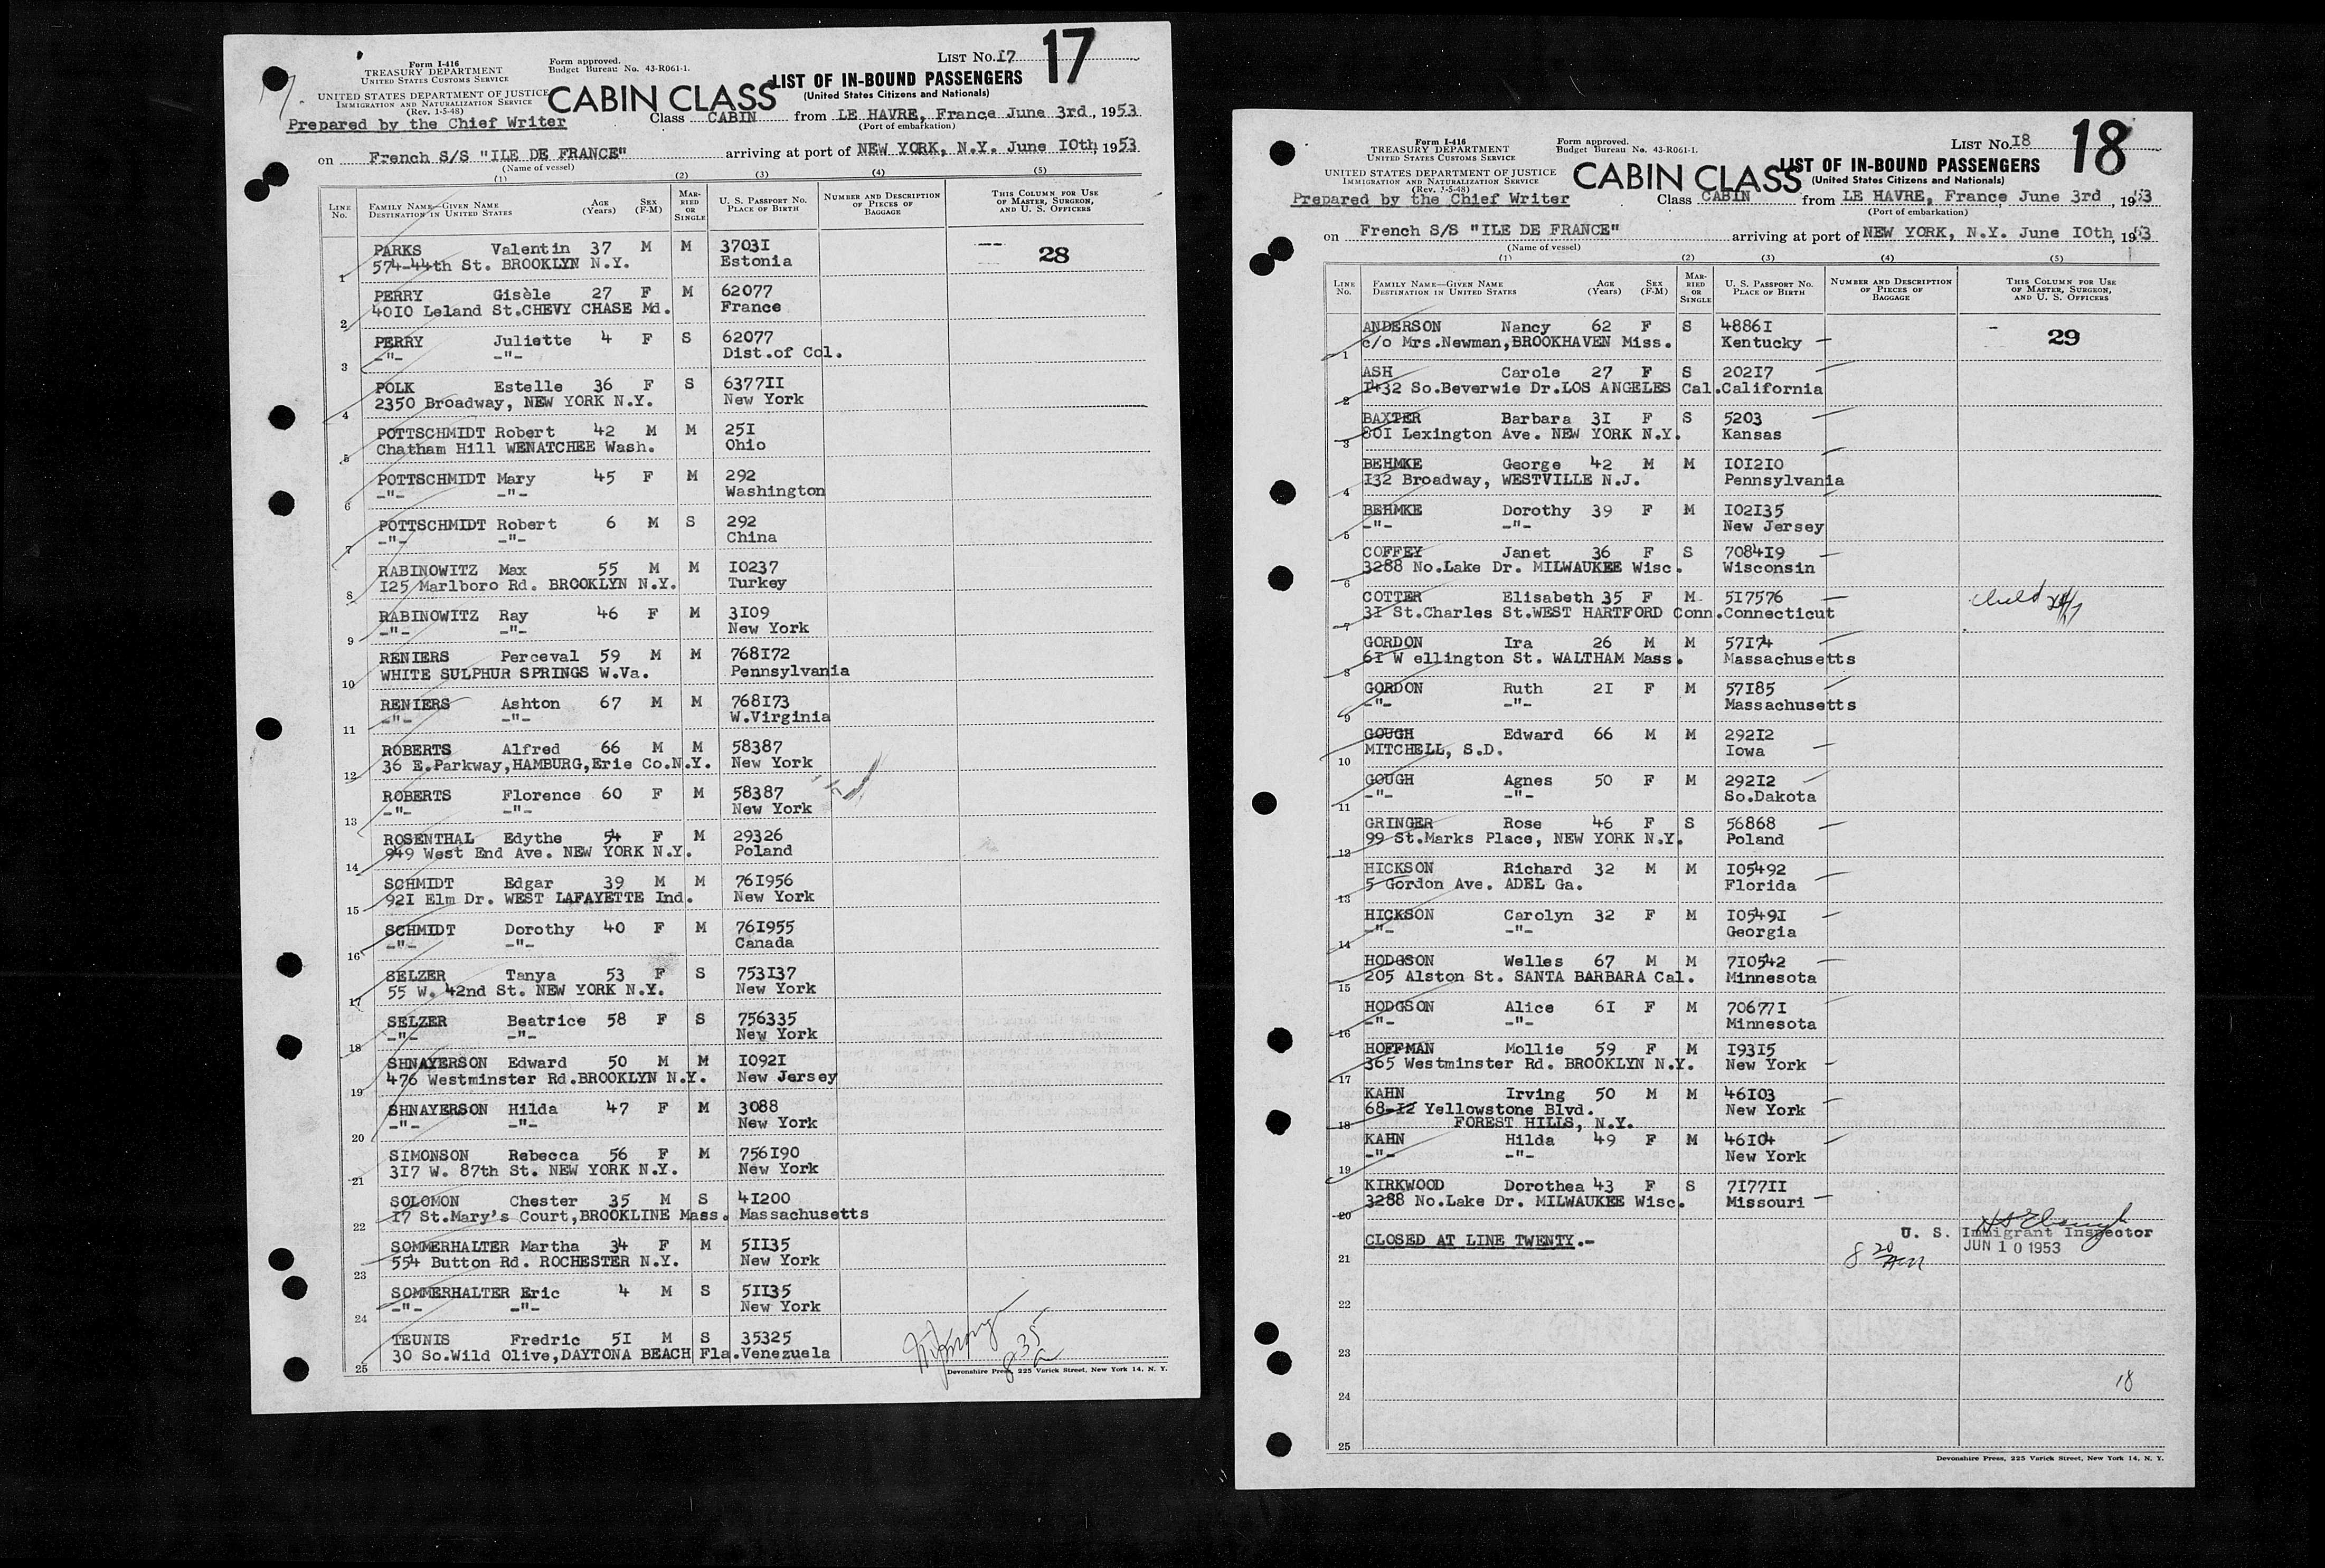 Form I-416
TREASURY DEPARTMENT
UNITED STATES CUSTOMS SERVICE
UNITED STATES DEPARTMENT OF JUSTICE
IMMIGRATION AND NATURALIZATION SERVICE
(Rev. 1-5-48)
Form approved.
Budget Bureau No. 43-R061-1.
LIST No. I7
17
CABIN CLASS
LIST OF IN-BOUND PASSENGERS
(United States Citizens and Nationals)
Prepared by the Chief Writer
Class CABIN from LE HAVRE, France June 3rd, 1953
(Port of embarkation)
on French S/S "ILE DE FRANCE" arriving at port of NEW YORK, N.Y. June I0th, 1953
(Name of vessel)
(1) (2) (3) (4) (5)
LINE No. FAMILY NAME—GIVEN NAME DESTINATION IN UNITED STATES AGE (Years) SEX (F-M) MARRIED OR SINGLE U. S. PASSPORT No. PLACE OF BIRTH NUMBER AND DESCRIPTION OF PIECES OF BAGGAGE THIS COLUMN FOR USE OF MASTER, SURGEON, AND U. S. OFFICERS
28
PARKS Valentin 37 M M 3703I
1 574-44th St. BROOKLYN N.Y. Estonia
PERRY Gisèle 27 F M 62077
2 40I0 Leland St.CHEVY CHASE Md. France
PERRY Juliette 4 F S 62077
3 -"- -"- Dist.of Col.
POLK Estelle 36 F S 6377II
4 2350 Broadway, NEW YORK N.Y. New York
POTTSCHMIDT Robert 42 M M 25I
5 Chatham Hill WENATCHEE Wash. Ohio
POTTSCHMIDT Mary 45 F M 292
6 -"- -"- Washington
POTTSCHMIDT Robert 6 M S 292
7 -"- -"- China
RABINOWITZ Max 55 M M I0237
8 I25 Marlboro Rd. BROOKLYN N.Y. Turkey
RABINOWITZ Ray 46 F M 3I09
9 -"- -"- New York
RENIERS Perceval 59 M M 768I72
10 WHITE SULPHUR SPRINGS W.Va. Pennsylvania
RENIERS Ashton 67 M M 768I73
11 -"- -"- W.Virginia
ROBERTS Alfred 66 M M 58387
12 36 E.Parkway,HAMBURG,Erie Co.N.Y. New York
ROBERTS Florence 60 F M 58387
13 -"- -"- New York
ROSENTHAL Edythe 54 F M 29326
14 949 West End Ave. NEW YORK N.Y. Poland
SCHMIDT Edgar 39 M M 76I956
15 92I Elm Dr. WEST LAFAYETTE Ind. New York
SCHMIDT Dorothy 40 F M 76I955
16 -"- -"- Canada
SELZER Tanya 53 F S 753I37
17 55 W. 42nd St. NEW YORK N.Y. New York
SELZER Beatrice 58 F S 756335
18 -"- -"- New York
SHNAYERSON Edward 50 M M I092I
19 476 Westminster Rd.BROOKLYN N.Y. New Jersey
SHNAYERSON Hilda 47 F M 3088
20 -"- -"- New York
SIMONSON Rebecca 56 F M 756I90
21 3I7 W. 87th St. NEW YORK N.Y. New York
SOLOMON Chester 35 M S 4I200
22 I7 St.Mary's Court,BROOKLINE Mass. Massachusetts
SOMMERHALTER Martha 34 F M 5II35
23 554 Button Rd. ROCHESTER N.Y. New York
SOMMERHALTER Eric 4 M S 5II35
24 -"- -"- New York
TEUNIS Fredric 5I M S 35325
25 30 So.Wild Olive,DAYTONA BEACH Fla. Venezuela
8 35 a
Devonshire Press, 225 Varick Street, New York 14, N. Y.
Form I-416
TREASURY DEPARTMENT
UNITED STATES CUSTOMS SERVICE
UNITED STATES DEPARTMENT OF JUSTICE
IMMIGRATION AND NATURALIZATION SERVICE
(Rev. 1-5-48)
Form approved.
Budget Bureau No. 43-R061-1.
LIST No. I8
18
CABIN CLASS
LIST OF IN-BOUND PASSENGERS
(United States Citizens and Nationals)
Prepared by the Chief Writer
Class CABIN from LE HAVRE, France June 3rd, 1953
(Port of embarkation)
on French S/S "ILE DE FRANCE" arriving at port of NEW YORK, N.Y. June I0th, 1953
(Name of vessel)
(1) (2) (3) (4) (5)
LINE No. FAMILY NAME—GIVEN NAME DESTINATION IN UNITED STATES AGE (Years) SEX (F-M) MARRIED OR SINGLE U. S. PASSPORT No. PLACE OF BIRTH NUMBER AND DESCRIPTION OF PIECES OF BAGGAGE THIS COLUMN FOR USE OF MASTER, SURGEON, AND U. S. OFFICERS
29
ANDERSON Nancy 62 F S 4886I
1 c/o Mrs.Newman,BROOKHAVEN Miss. Kentucky
ASH Carole 27 F S 202I7
2 I432 So.Beverwie Dr.LOS ANGELES Cal. California
BAXTER Barbara 3I F S 5203
3 80I Lexington Ave. NEW YORK N.Y. Kansas
BEHMKE George 42 M M I0I2I0
4 I32 Broadway, WESTVILLE N.J. Pennsylvania
BEHMKE Dorothy 39 F M I02I35
5 -"- -"- New Jersey
COFFEY Janet 36 F S 7084I9
6 3288 No.Lake Dr. MILWAUKEE Wisc. Wisconsin
COTTER Elisabeth 35 F M 5I7576
7 3I St.Charles St.WEST HARTFORD Conn. Connecticut
GORDON Ira 26 M M 57I74
8 6I W ellington St. WALTHAM Mass. Massachusetts
GORDON Ruth 2I F M 57I85
9 -"- -"- Massachusetts
GOUGH Edward 66 M M 292I2
10 MITCHELL, S.D. Iowa
GOUGH Agnes 50 F M 292I2
11 -"- -"- So.Dakota
GRINGER Rose 46 F S 56868
12 99 St.Marks Place, NEW YORK N.Y. Poland
HICKSON Richard 32 M M I05492
13 5 Gordon Ave. ADEL Ga. Florida
HICKSON Carolyn 32 F M I0549I
14 -"- -"- Georgia
HODGSON Welles 67 M M 7I0542
15 205 Alston St. SANTA BARBARA Cal. Minnesota
HODGSON Alice 6I F M 70677I
16 -"- -"- Minnesota
HOFFMAN Mollie 59 F M I93I5
17 365 Westminster Rd. BROOKLYN N.Y. New York
KAHN Irving 50 M M 46I03
68-I2 Yellowstone Blvd. New York
18 FOREST HILLS, N.Y.
KAHN Hilda 49 F M 46I04
19 -"- -"- New York
KIRKWOOD Dorothea 43 F S 7I77II
20 3288 No.Lake Dr. MILWAUKEE Wisc. Missouri
U. S. Immigrant Inspector
21 CLOSED AT LINE TWENTY.- JUN 10 1953
8 20 AM
22
23
24
18
25
Devonshire Press, 225 Varick Street, New York 14, N. Y.